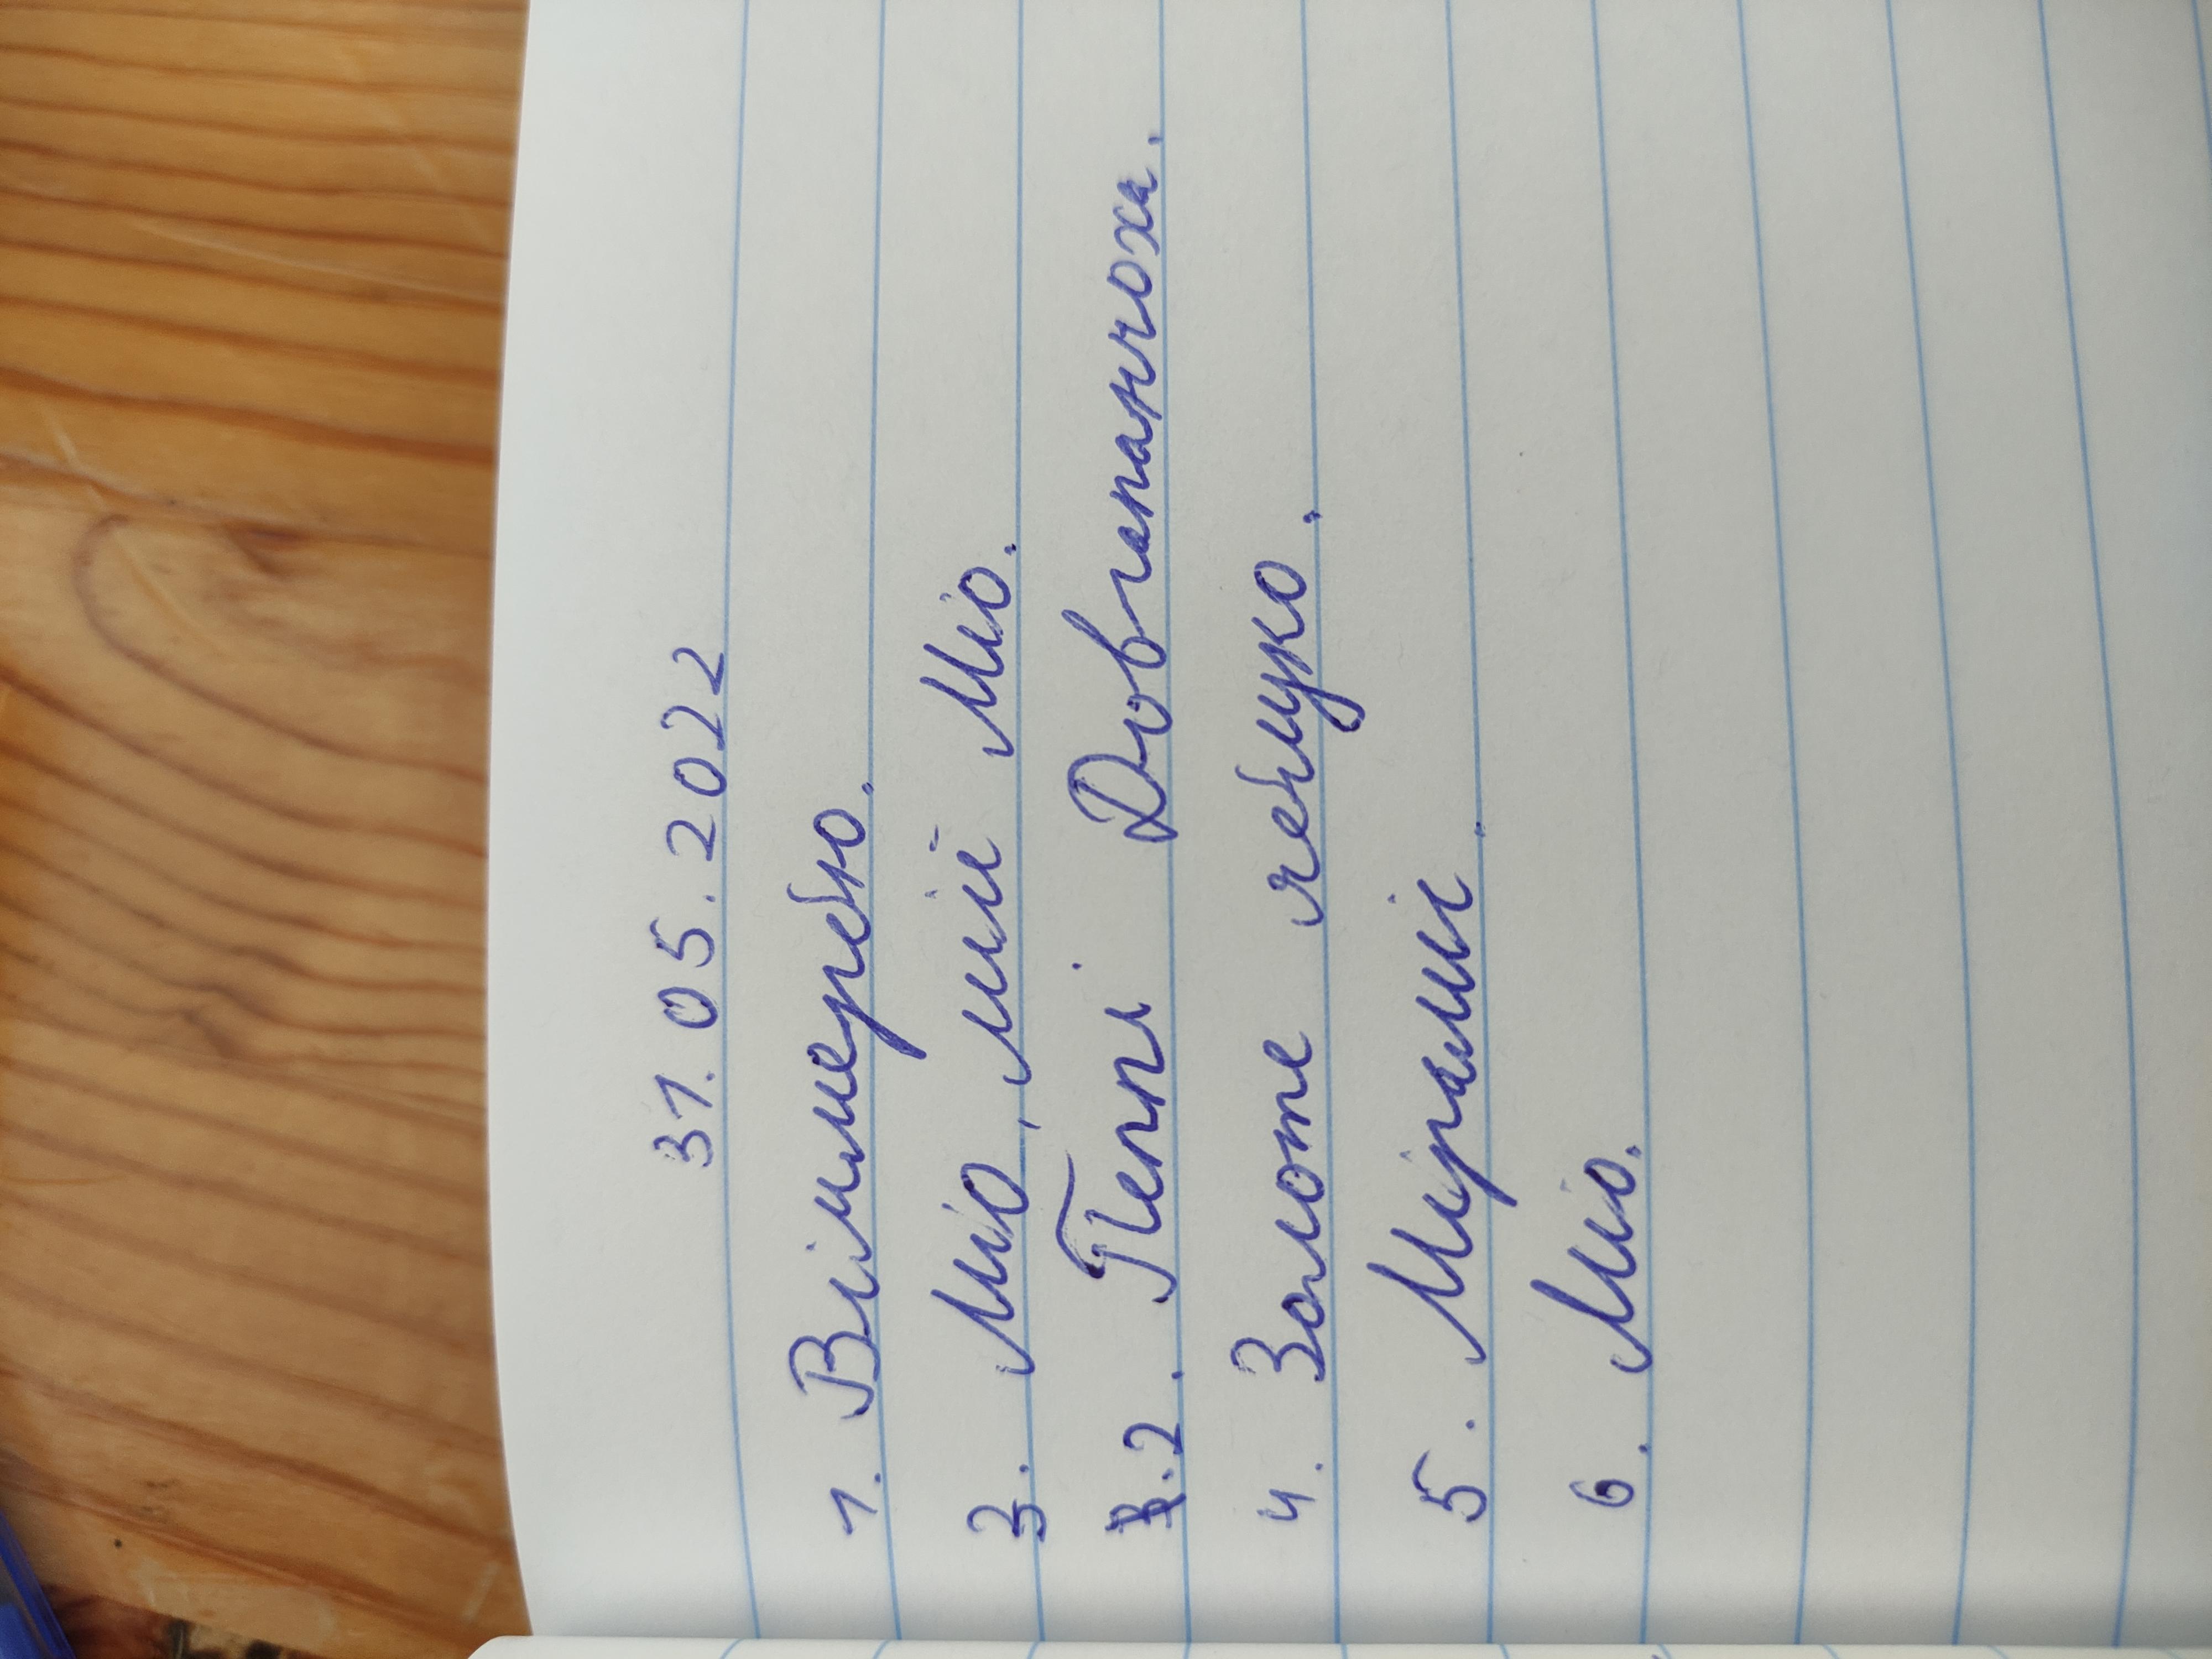 31.05.2022
1. Віммербю.
3. Міо, мій Міо.
2. Пеппі Довгапанчоха.
4. Золоте яблуко.
5. Мірамі.
6. Міо.